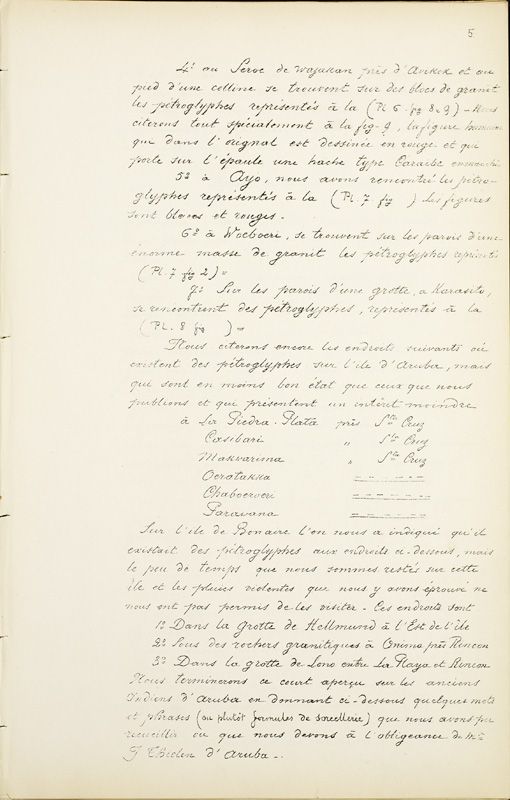 5
4º au Seroe de Wajukan près d'Avikok et au
pied d'une colline se trouvent sur des blocs de granit
les pétroglyphes représentés à la (Pl. 6. fig 8 & 9) - Nous
citerons tout spécialement à la fig. 9, la figure humaine
que dans l'orignal est dessinée en rouge et qui
porte sur l'épaule une hache type Caraïbe emmanchée
5º à Ayo, nous avons rencontré les pétro-
glyphes représentés à la (Pl. 7 fig ) les figures
sont blanes et rouges.
6º à Woeboeri, se trouvent sur les parois d'une
énorme masse de granit les pétroglyphes représentés
(Pl. 7 fig 2) =
7º Sur les parois d'une grotte, a Karasito,
se rencontrent des pétroglyphes, représentés à la
(Pl. 8 fig ) =
Nous citerons encore les endroits suivants où
existent des pétroglyphes sur l'ile d'Aruba, mais
qui sont en moins bon état que ceux que nous
publions et qui présentent un intérêt moindre
à La Piedra-Plata près Sta Cruz
Casibari " Sta Cruz
Makvarima " Sta Cruz
Oeratakka
Chaboerveri
Paravana
Sur l'ile de Bonaire l'on nous a indiqué qu'il
existait des pétroglyphes aux endroits ci-dessous, mais
le peu de temps que nous sommes restés sur cette
ile et les pluies violentes que nous y avons éprouvé ne
nous ont pas permis de les visiter - Ces endroits sont
1º Dans la grotte de Hellmund à l'Est de l'ile
2º Sous des rochers granitiques à Onima près Rincon
3º Dans la grotte de Lono entre La Playa et Rincon
Nous terminerons ce court aperçu sur les anciens
Indiens d'Aruba en donnant ci-dessous quelques mots
et phrases (ou plutôt formules de sorcellerie) que nous avons pu
recueillir ou que nous devons à l'obligeance de
d'Aruba -.